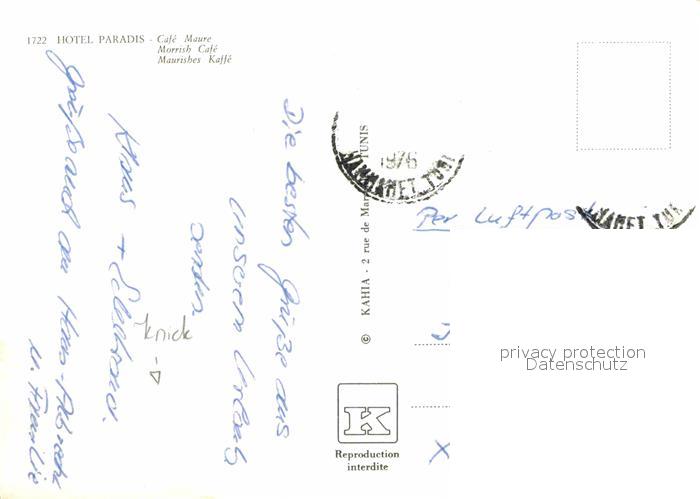 1722 HOTEL PARADIS - Café Maure
Morrish Café
Maurishes Kaffé
Die besten Grüße aus
unserem Urlaub
senden
Klaus +
Grüße auch an Hans-
u. Familie
knick
© KAHIA - 2 rue de Mar TUNIS
1976
HAMMAMET TUNI
Per Luftpost
MAMET TUN
privacy protection
Datenschutz
K
Reproduction
interdite
X